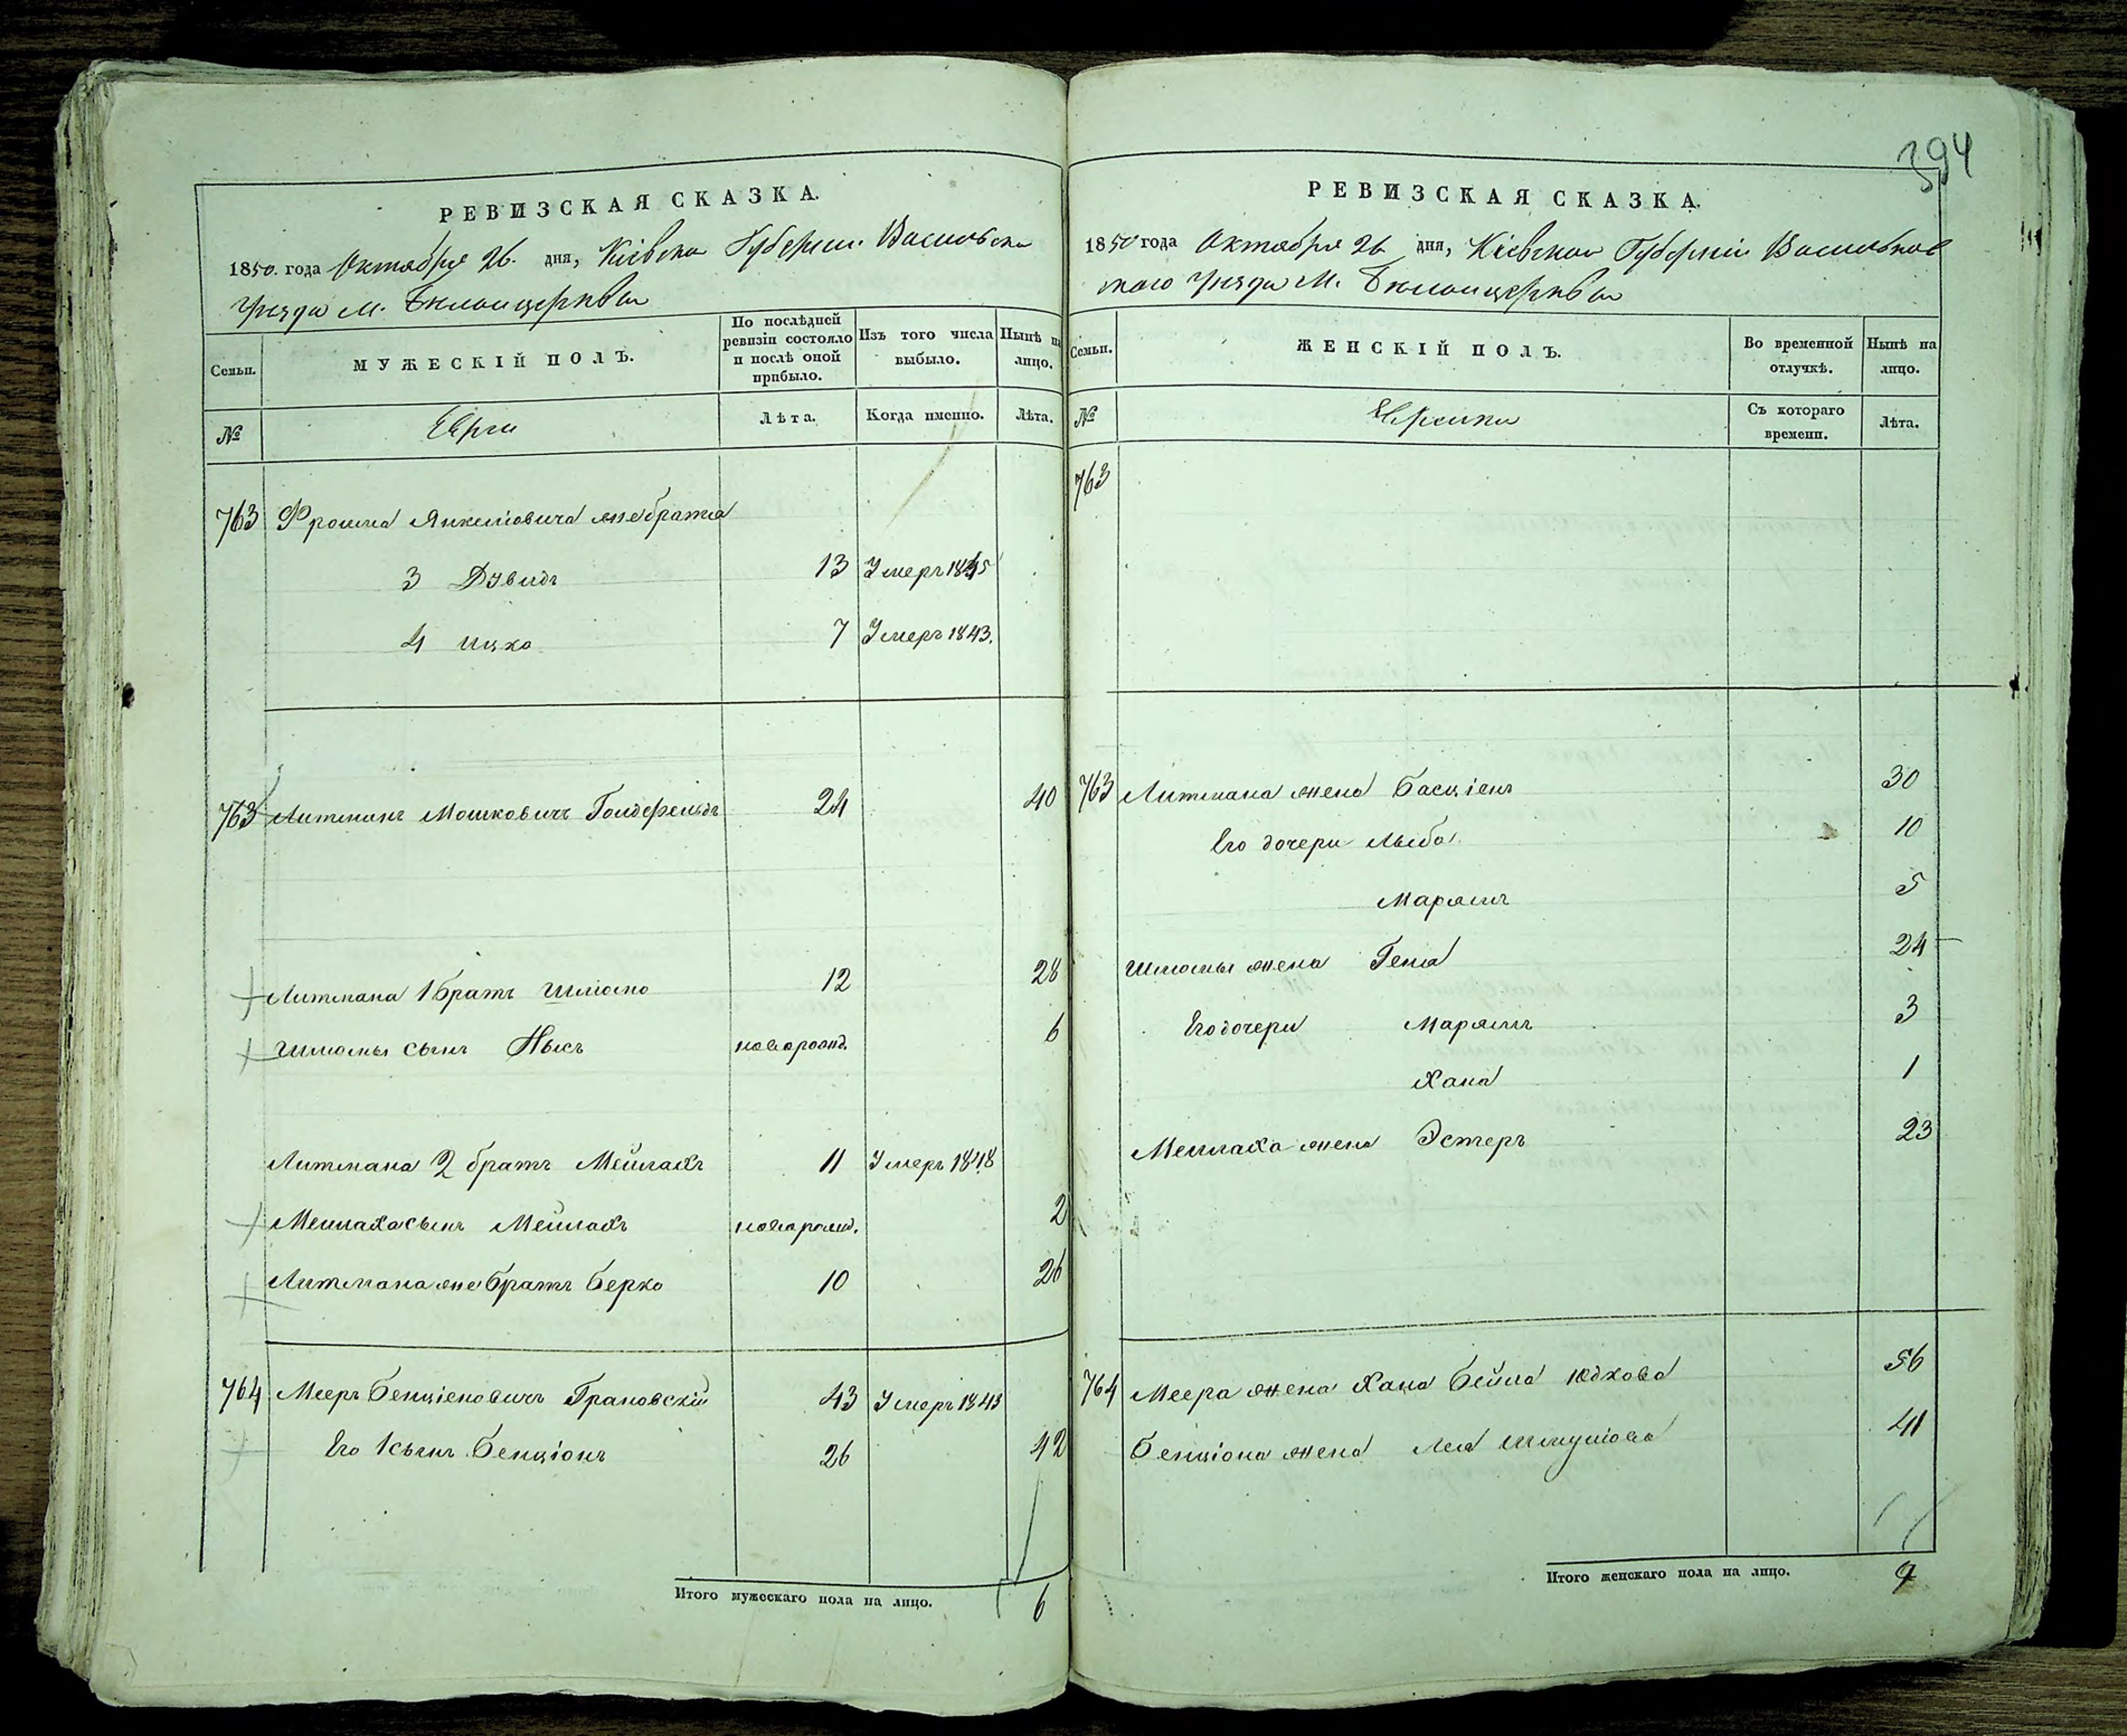 394
РЕВИЗСКАЯ СКАЗКА.
1850. года Октября 26. дня, Кіевско Губерніи Васильско
Уезда М. Белоицеркви
Семьи.
МУЖЕСКІЙ ПОЛЪ.
По послѣдней ревизіи состояло и послѣ оной прибыло.
Изъ того числа выбыло.
Нынѣ на лицо.
№
Евреи
Лѣта.
Когда именно.
Лѣта.
763 Фроима Янкелiовича же братiа
3 Дувидъ 13 Умеръ 1845
4 Ицко 7 Умеръ 1843.
763 Литманъ Мошковичъ Голдфельдъ 24 40
Литмана 1 братъ Шліомо 12 28
Шліомы сынъ Нысъ новорожд. 6
Литмана 2 братъ Мейлахъ 11 Умеръ 1848
Мейлаха сынъ Мейлахъ новорожд. 2
Литмана же братъ Берко 10 26
764 Мееръ Бенціеновичъ Грановскій 43 Умеръ 1843
Его 1 сынъ Бенціонъ 26 42
Итого мужескаго пола на лицо. 6
РЕВИЗСКАЯ СКАЗКА.
1850 года Октября 26 дня, Кіевской Губерніи Васильков
скаго Уезда М. Белоицеркви
Семьи.
ЖЕНСКІЙ ПОЛЪ.
Во временной отлучкѣ.
Нынѣ на лицо.
№
Еврейки
Съ котораго времени.
Лѣта.
763
763 Литмана жена Басціенъ 30
Его дочери Лыба 10
Марямъ 5
Шліомы жена Геня 24
Его дочери Марямъ 3
Хана 1
Мейлаха жена Эстеръ 23
764 Меера жена Хана Бейла Юдкова 56
Бенціона жена Лея Шмуліова 41
Итого женскаго пола на лицо. 9